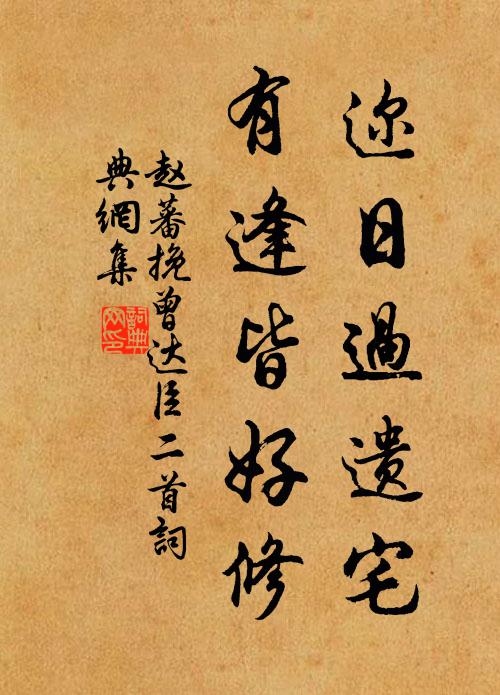 迩日過遗宅
有逢皆好修
赵蕃挽曾达臣二首詞
典網集
詞典网印